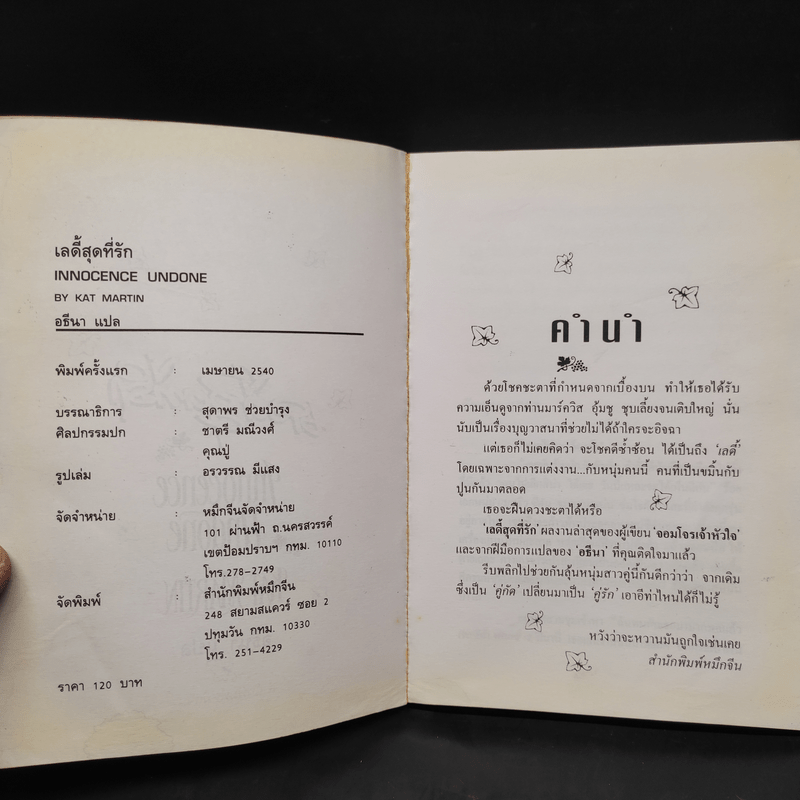 เลดี้สุดที่รัก
INNOCENCE UNDONE
BY KAT MARTIN
อธีนา แปล
พิมพ์ครั้งแรก : เมษายน 2540
บรรณาธิการ : สุดาพร ช่วยบำรุง
ศิลปกรรมปก : ชาตรี มณีวงศ์
คุณปู่
รูปเล่ม : อรวรรณ มีแสง
จัดจำหน่าย : หมึกจีนจัดจำหน่าย
101 ผ่านฟ้า ถ.นครสวรรค์
เขตป้อมปราบฯ กทม. 10110
โทร.278-2749
จัดพิมพ์ : สำนักพิมพ์หมึกจีน
248 สยามสแควร์ ซอย 2
ปทุมวัน กทม. 10330
โทร. 251-4229
ราคา 120 บาท
คำนำ
ด้วยโชคชะตาที่กำหนดจากเบื้องบน ทำให้เธอได้รับ
ความเอ็นดูจากท่านมาร์ควิส อุ้มชู ชุบเลี้ยงจนเติบใหญ่ นั่น
นับเป็นเรื่องบุญวาสนาที่ช่วยไม่ได้ถ้าใครจะอิจฉา
แต่เธอก็ไม่เคยคิดว่า จะโชคดีซ้ำซ้อน ได้เป็นถึง 'เลดี้'
โดยเฉพาะจากการแต่งงาน...กับหนุ่มคนนี้ คนที่เป็นขมิ้นกับ
ปูนกันมาตลอด
เธอจะฝืนดวงชะตาได้หรือ
'เลดี้สุดที่รัก' ผลงานล่าสุดของผู้เขียน 'จอมโจรเจ้าหัวใจ'
และจากฝีมือการแปลของ 'อธีนา' ที่คุณติดใจมาแล้ว
รีบพลิกไปช่วยกันลุ้นหนุ่มสาวคู่นี้กันดีกว่าว่า จากเดิม
ซึ่งเป็น 'คู่กัด' เปลี่ยนมาเป็น 'คู่รัก' เอาอีท่าไหนได้ก็ไม่รู้
หวังว่าจะหวานมันถูกใจเช่นเคย
สำนักพิมพ์หมึกจีน